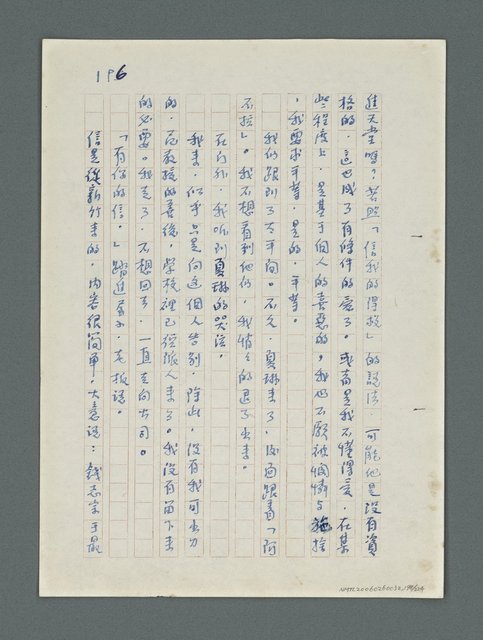 196
進天堂嗎？若照「信我的得救」的說法，可能他是沒有資
格的，這也成了有條件的愛了。或者是我不懂得愛，在某
些程度上，是基于個人的喜惡的。我也不願被憐憫與施捨
，我要求平等，是的，平等。
我們跟到了太平間。不久，夏琳來了，後面跟着「阿
不拉」。我不想看到他們，我悄々的退了出來。
在門外，我听到夏琳的哭泣。
我來，似乎只是向這個人告別，除此，沒有我可出力
的，而教授的善後，學校裡已經派人來了。我沒有留下來
的必要。我走了，不想回去，一直走向公司。
「有你的信。」踏進  ，老板說。
信是從新竹來的，內容很簡單。大意說：錢志宇于最
NMTL20060260032_199/224